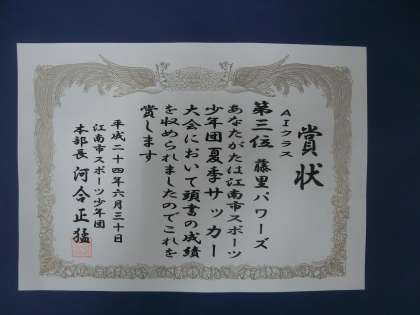 賞状
AIクラス
第三位 藤里パワーズ
あなたがたは江南市スポーツ
少年団夏季サッカー
大会において頭書の成績
を収められましたのでこれを
賞します
平成二十四年六月三十日
江南市スポーツ少年団
本部長 河合正猛